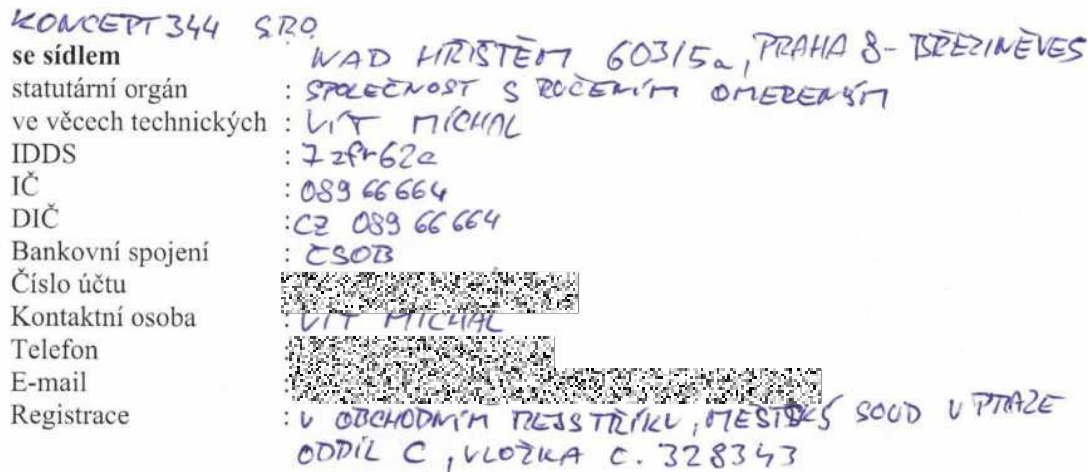 KONCEPT 344 S.R.O.
se sídlem NAD HŘIŠTĚM 603/5a, PRAHA 8 - BŘEZINĚVES
statutární orgán : SPOLEČNOST S RUČENÍM OMEZENÝM
ve věcech technických : VÍT MÍCHAL
IDDS : 7zfr62a
IČ : 089 66 664
DIČ :CZ 089 66 664
Bankovní spojení : ČSOB
Číslo účtu
Kontaktní osoba : VÍT MÍCHAL
Telefon
E-mail :
Registrace : V OBCHODNÍM REJSTŘÍKU, MĚSTSKÝ SOUD V PRAZE
ODDÍL C, VLOŽKA C. 328343